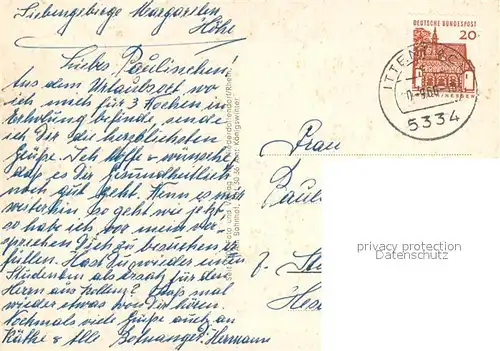 Siebengebirge Margareten
Höhe
Liebes Paulinchen!
Aus dem Urlaubsort, wo
ich mich für 3 Wochen in
Erholung befinde sende
ich Dir die herzlichsten
Grüße. Ich hoffe & wünsche
daß es Dir gesundheitlich
noch gut geht. Wenn es mir
weiterhin so geht wie jetzt,
so habe ich vor mein Ver-
sprechen Dich zu besuchen zu
füllen. Hast Du wieder einen
Studenten als Ersatz für den
Herrn aus
wieder etwas von Dir hören.
Nochmals viele Grüße auch an
Käthe & Alle Hermann
DEUTSCHE BUNDESPOST
20
ITTENBACH
5334
Frau
Paul
privacy protection
Datenschutz